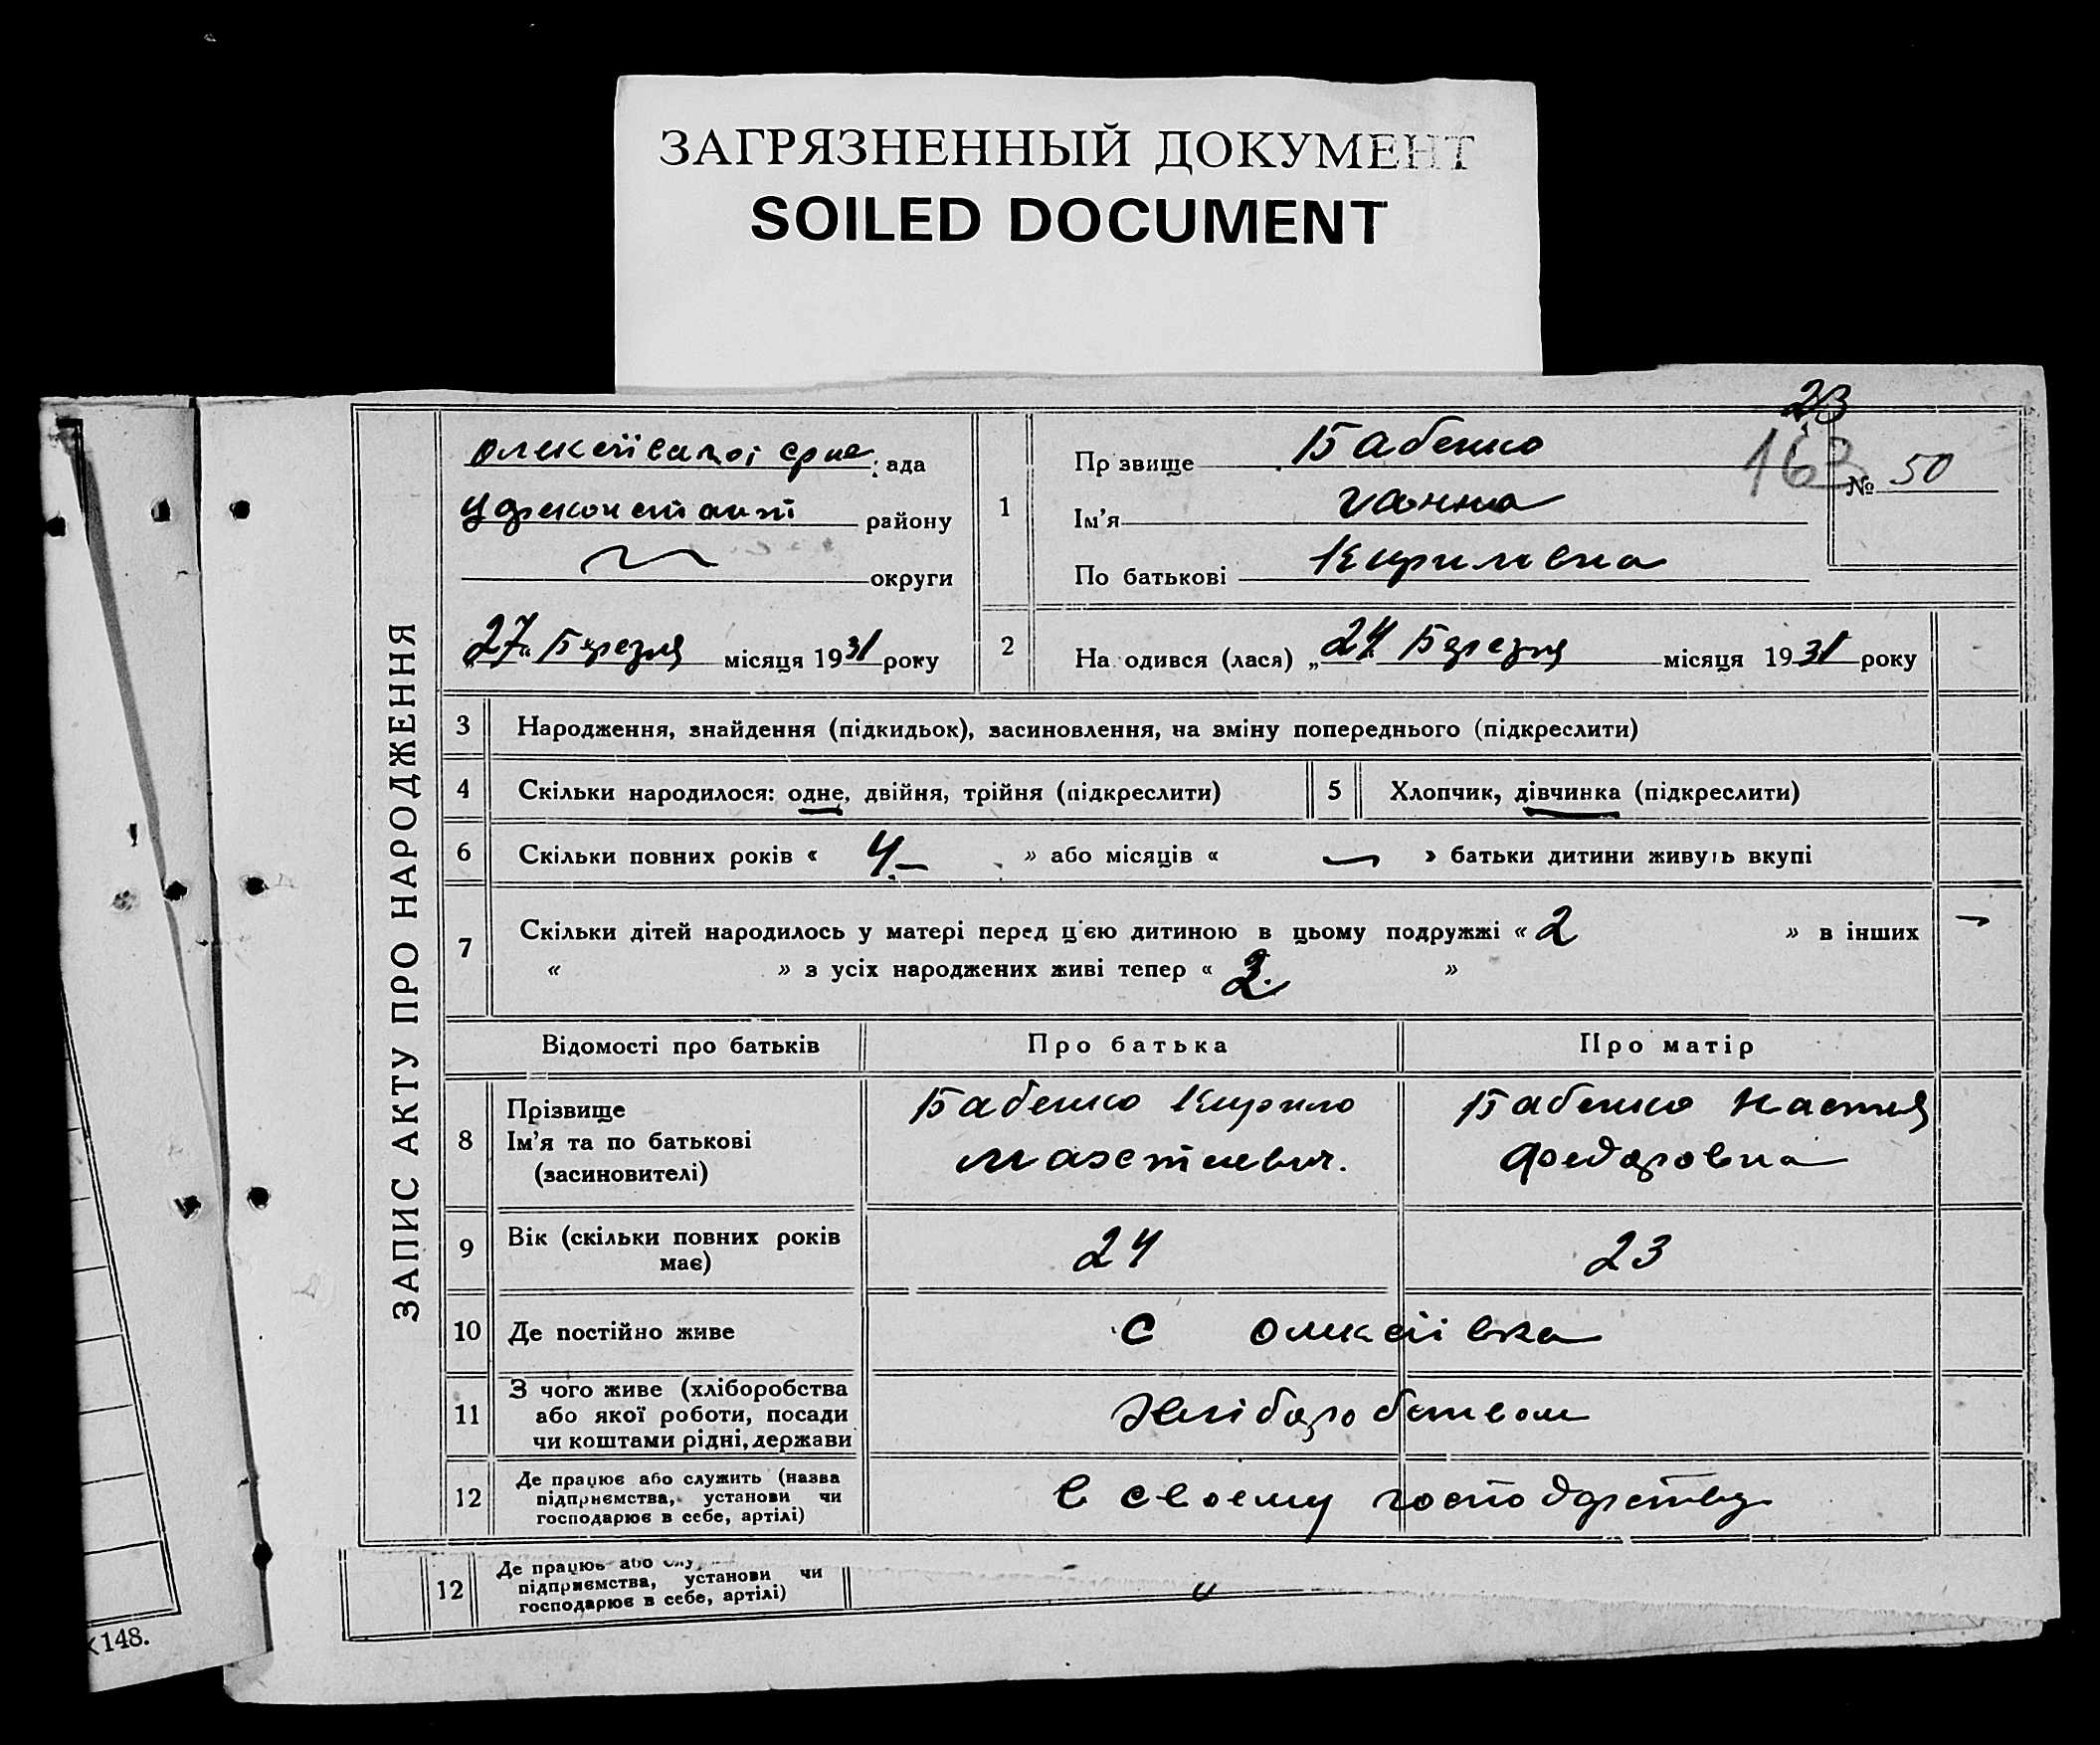 ЗАГРЯЗНЕННЫЙ ДОКУМЕНТ
SOILED DOCUMENT
ЗАПИС АКТУ ПРО НАРОДЖЕННЯ
23
163
№ 50
ада
району
округи
27 Березня місяця 1931 року
1
Пр звище Бабенко
Ім'я Ганна
По батькові Кирилівна
2 На одився (лася) „24" Березня місяця 1931 року
3 Народження, знайдення (підкидьок), засиновлення, на зміну попереднього (підкреслити)
4 Скільки народилося: одне, двійня, трійня (підкреслити)
5 Хлопчик, дівчинка (підкреслити)
6 Скільки повних років « 4.— » або місяців « — » батьки дитини живуть вкупі
7 Скільки дітей народилось у матері перед ц'єю дитиною в цьому подружжі « 2 » в інших
« » з усіх народжених живі тепер « 2. »
Відомості про батьків Про батька Про матір
8
Прізвище
Ім'я та по батькові
(засиновителі)
Бабенко Кирило
Бабенко Настя
Федоровна
9 Вік (скільки повних років
має)
24 23
10 Де постійно живе с Олексіївка
11 З чого живе (хліборобства
або якої роботи, посади
чи коштами рідні, держави
Хліборобством
12 Де працює або служить (назва
підприємства, установи чи
господарює в себе, артілі)
в своему господарству
12 Де працює або
підприємства, установи чи
господарює в себе, артілі)
148.